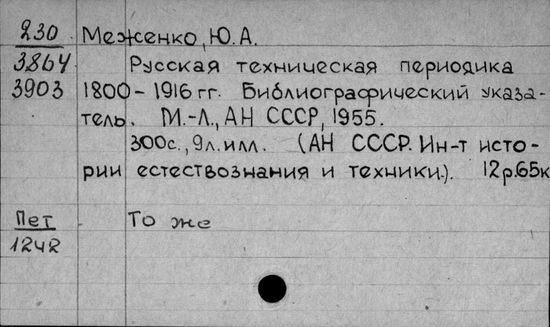 230 Меженко, Ю.А.
3864 Русская техническая периодика
3903 1800-1916 гг. Библиографический указа-
тель. М.-Л., АН СССР, 1955.
300с., 9л.илл. (АН СССР. Ин-т исто-
рии естествознания и техники.). 12р.65к
Пет То же
1242